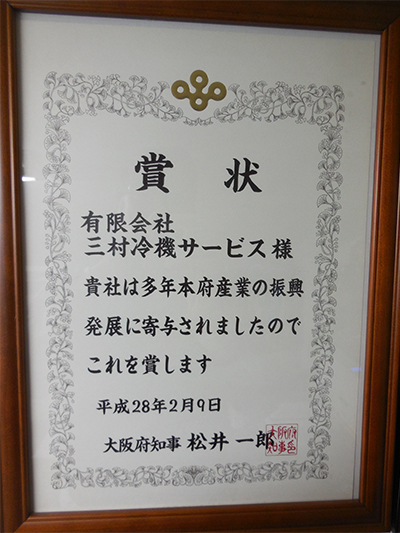 賞状
有限会社
三村冷機サービス様
貴社は多年本府産業の振興
発展に寄与されましたので
これを賞します
平成28年2月9日
大阪府知事 松井一郎
大阪府
知事印